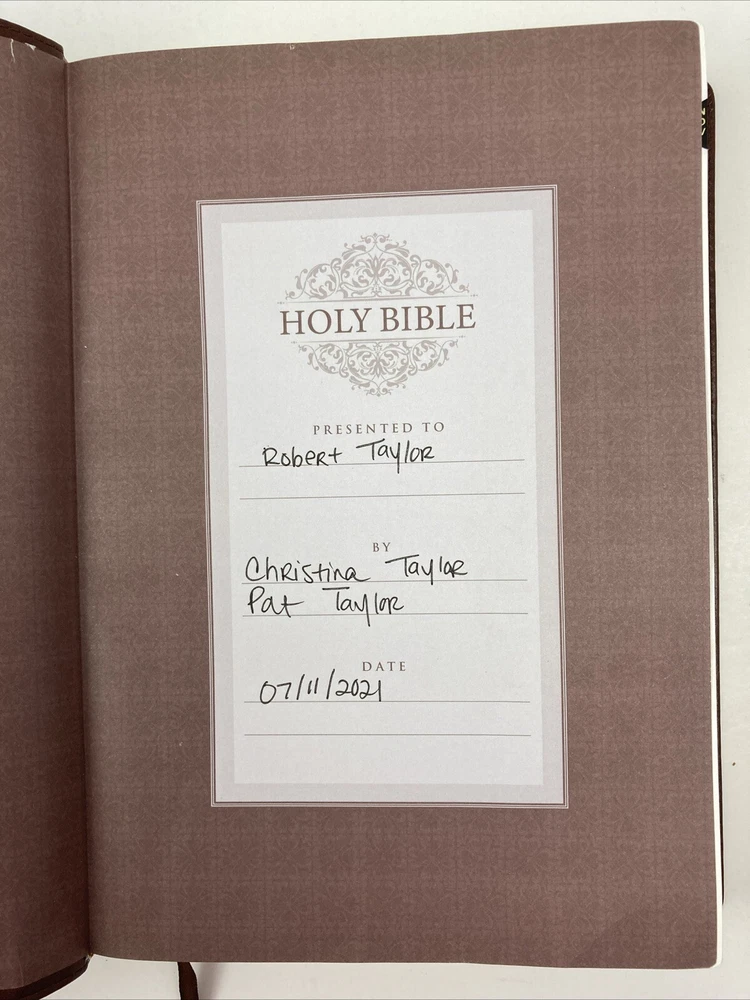 HOLY BIBLE
PRESENTED TO
Robert Taylor
BY
Christina Taylor
Pat Taylor
DATE
07/11/2021